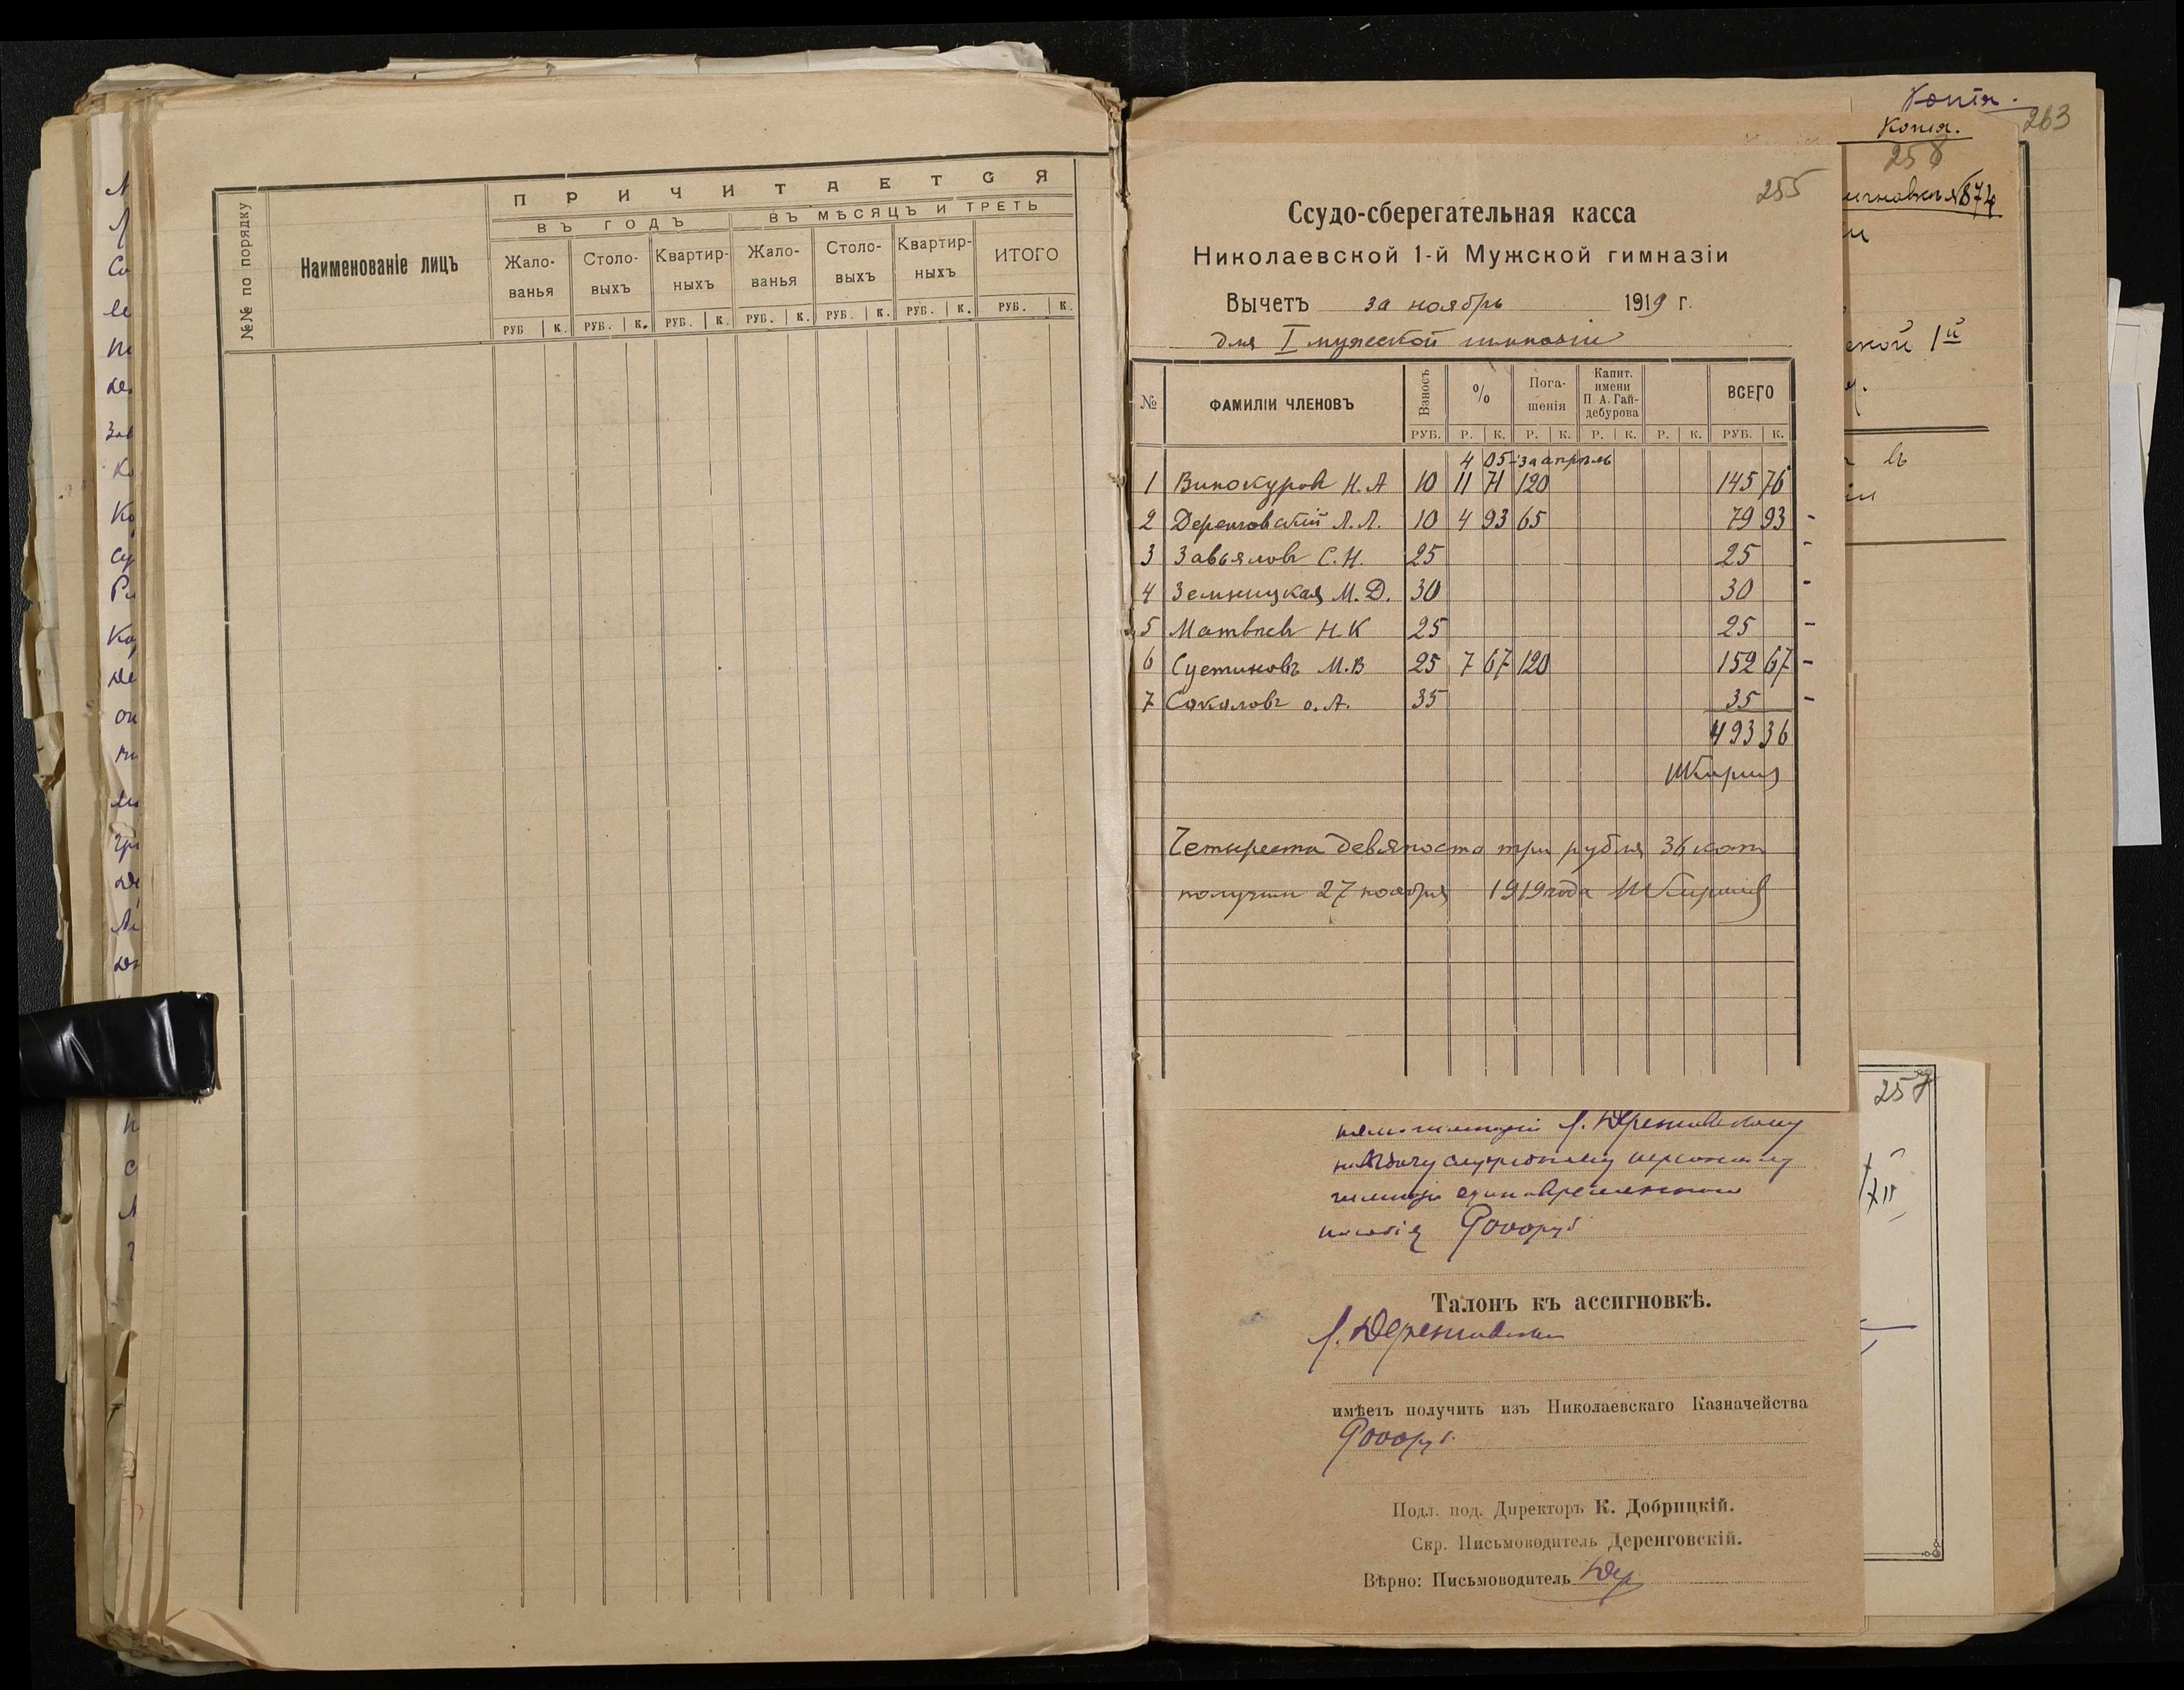 №№ по порядку
Наименованіе лицъ
ПРИЧИТАЕТСЯ
ВЪ ГОДЪ
ВЪ МѢСЯЦЪ И ТРЕТЬ
Жало-ванья
Столо-выхъ
Квартир-ныхъ
Жало-ванья
Столо-выхъ
Квартир-ныхъ
ИТОГО
РУБ К. РУБ. К. РУБ. К. РУБ. К. РУБ. К. РУБ. К. РУБ. К.
Копія.
263
Копія.
258
№874
255
Ссудо-сберегательная касса
Николаевской 1-й Мужской гимназіи
Вычетъ за ноябрь 1919 г.
для I мужской гимназіи
№ ФАМИЛІИ ЧЛЕНОВЪ Взносъ % Пога-шенія Капит. имени П. А. Гай-дебурова ВСЕГО
РУБ. Р. К. Р. К. Р. К. Р. К. РУБ. К.
4 05 - за апрѣль
1 Винокуровъ Н. А 10 11 71 120 145 76
2 Деренговскій Л. Л. 10 4 93 65 79 93 -
3 Завьяловъ С. Н. 25 25 -
4 Земницкая М. Д. 30 30 -
5 Матвѣевъ Н. К 25 25 -
6 Суетиновъ М. В 25 7 67 120 152 67 -
7 Соколовъ о. А. 35 35 -
493 36
Четыреста девяносто три рубля 36 коп
получил 27 ноября 1919 года
ской 1й
257
гимназіи Л. Деренговскому
на выдачу служебному персоналу
гимназіи единовременнаго
пособія 9000 руб
Талонъ къ ассигновкѣ.
Л. Деренговскій
имѣетъ получить изъ Николаевскаго Казначейства
9000 р.
Подл. под. Директоръ К. Добрицкій.
Скр. Письмоводитель Деренговскій.
Вѣрно: Письмоводитель Дер